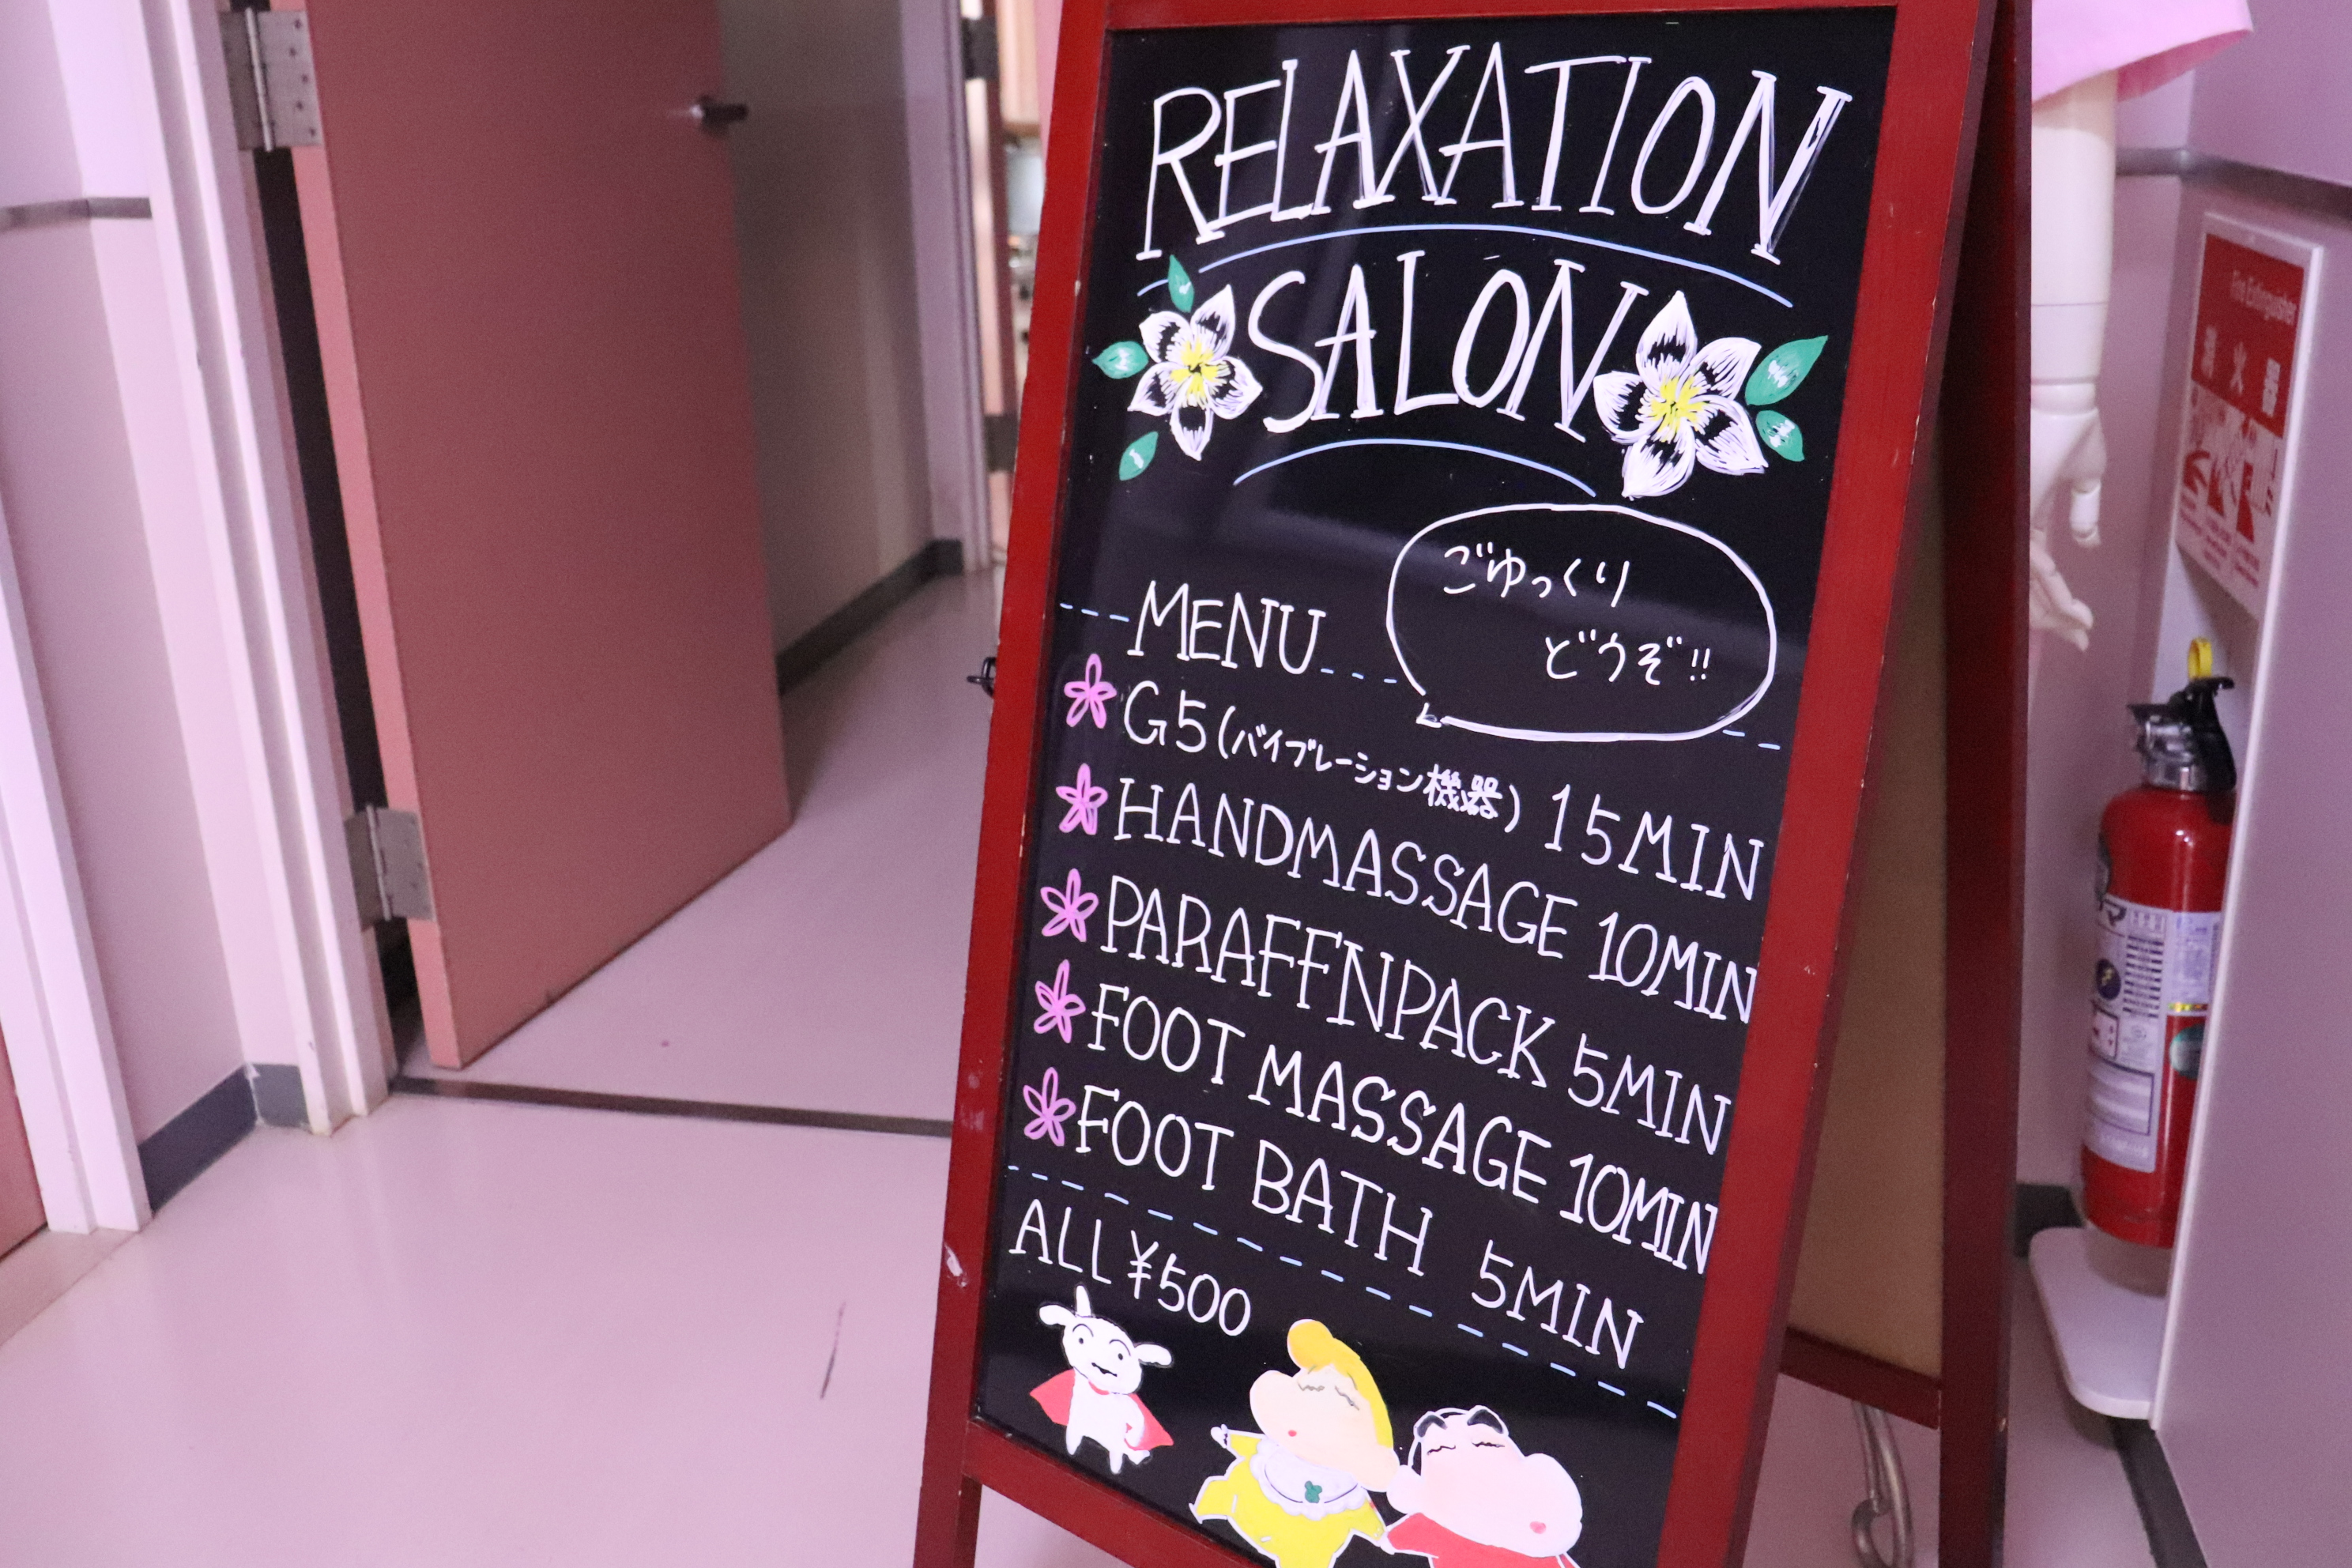 RELAXATION
SALON
ごゆっくり
どうぞ!!
MENU
G5(バイブレーション機器) 15MIN
HANDMASSAGE 10MIN
PARAFFNPACK 5MIN
FOOT MASSAGE 10MIN
FOOT BATH 5MIN
ALL ¥500
Fire Extinguisher
消火器